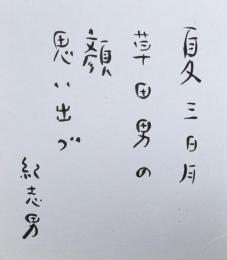 夏三日月
草田男の
顔
思い出づ
紀志男